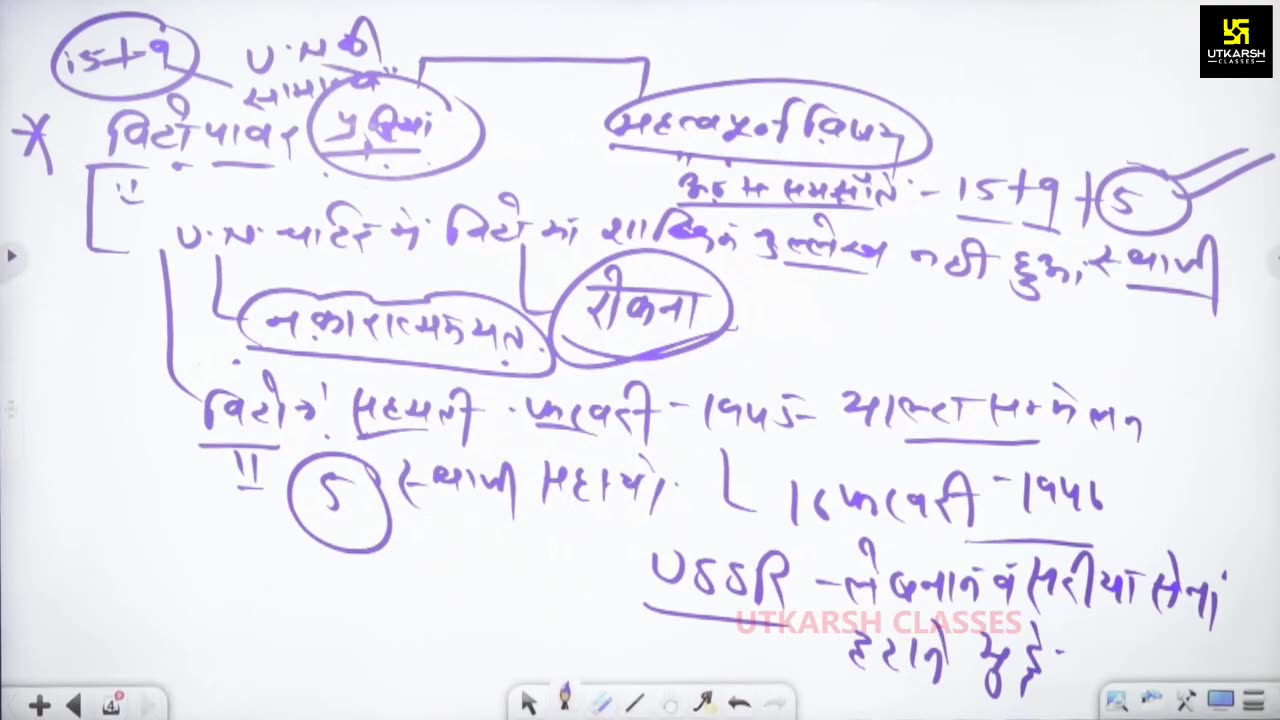 UTKARSH
CLASSES
15+9
U.N की
सामान्य
* विटो पावर प्रक्रिया
महत्वपूर्ण विषय
- 15+9+5
U.N. चार्टर में विटो का शाब्दिक उल्लेख नहीं हुआ, स्थायी
नकारात्मक मत
रोकना
विटो में सहमती . फरवरी - 1945 - याल्टा सम्मेलन
5 स्थायी सदस्यो.
16 फरवरी - 1946
USSR - लेबनान व सीरिया सेना
हटाने मुद्दे.
UTKARSH CLASSES
4